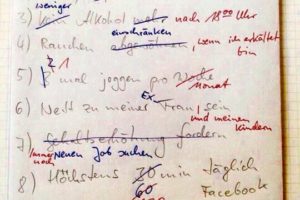 weniger
3) Kein Alkohol mehr nach 18 00 Uhr
einschränken
4) Rauchen abgewöhnen, wenn ich erkältet bin
1
5) 3 mal joggen pro Woche
Monat
Ex-
6) Nett zu meiner Frau sein
und meinen Kindern
7) Gehaltserhöhung fordern
Immer noch neuen Job suchen!
8) Höchstens 30 min täglich
60 Facebook